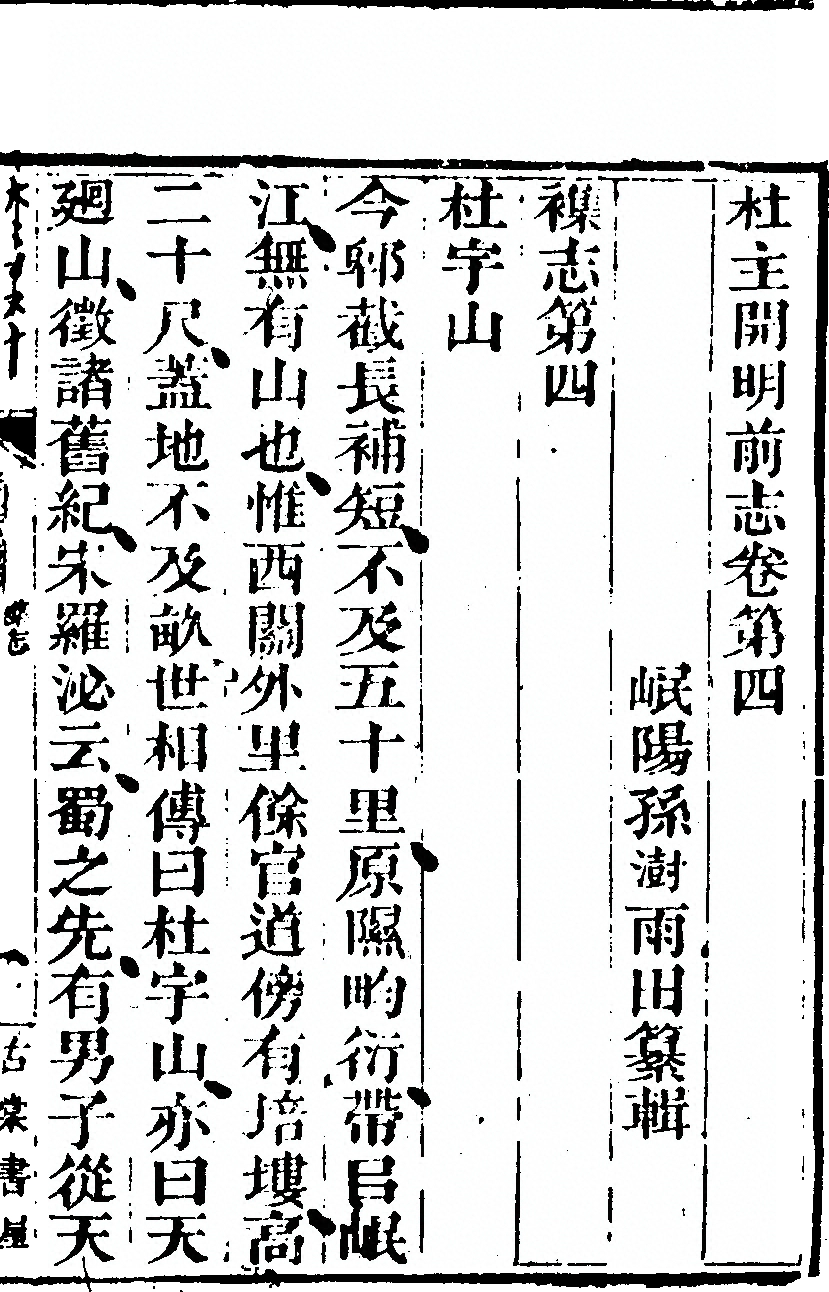 杜主開明前志卷第四
岷陽孫澍雨田纂輯
襍志第四
杜宇山
今郫截長補短不及五十里原隰畇衍帶㠯岷
江無有山也惟西關外里餘官道傍有培塿高
二十尺蓋地不及畝世相傳曰杜宇山亦曰天
廻山徵諸舊紀宋羅泌云蜀之先有男子從天
古棠書屋